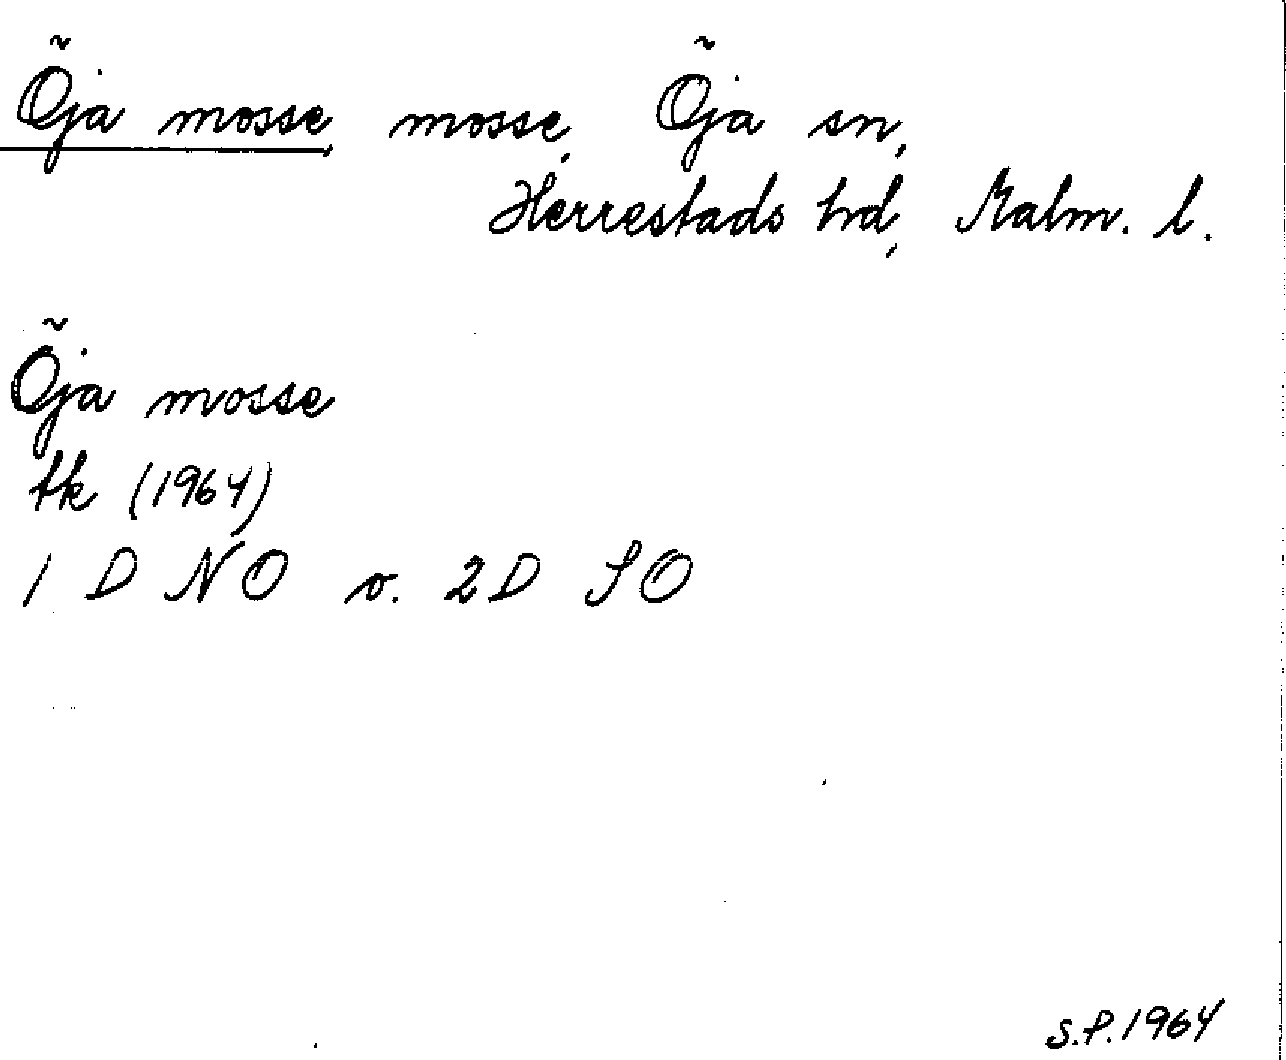 Öja mosse, mosse, Öja sn,
Herrestads hd, Malm. l.
Öja mosse
tk (1964)
1 D NO o. 2D SO
S.P. 1964